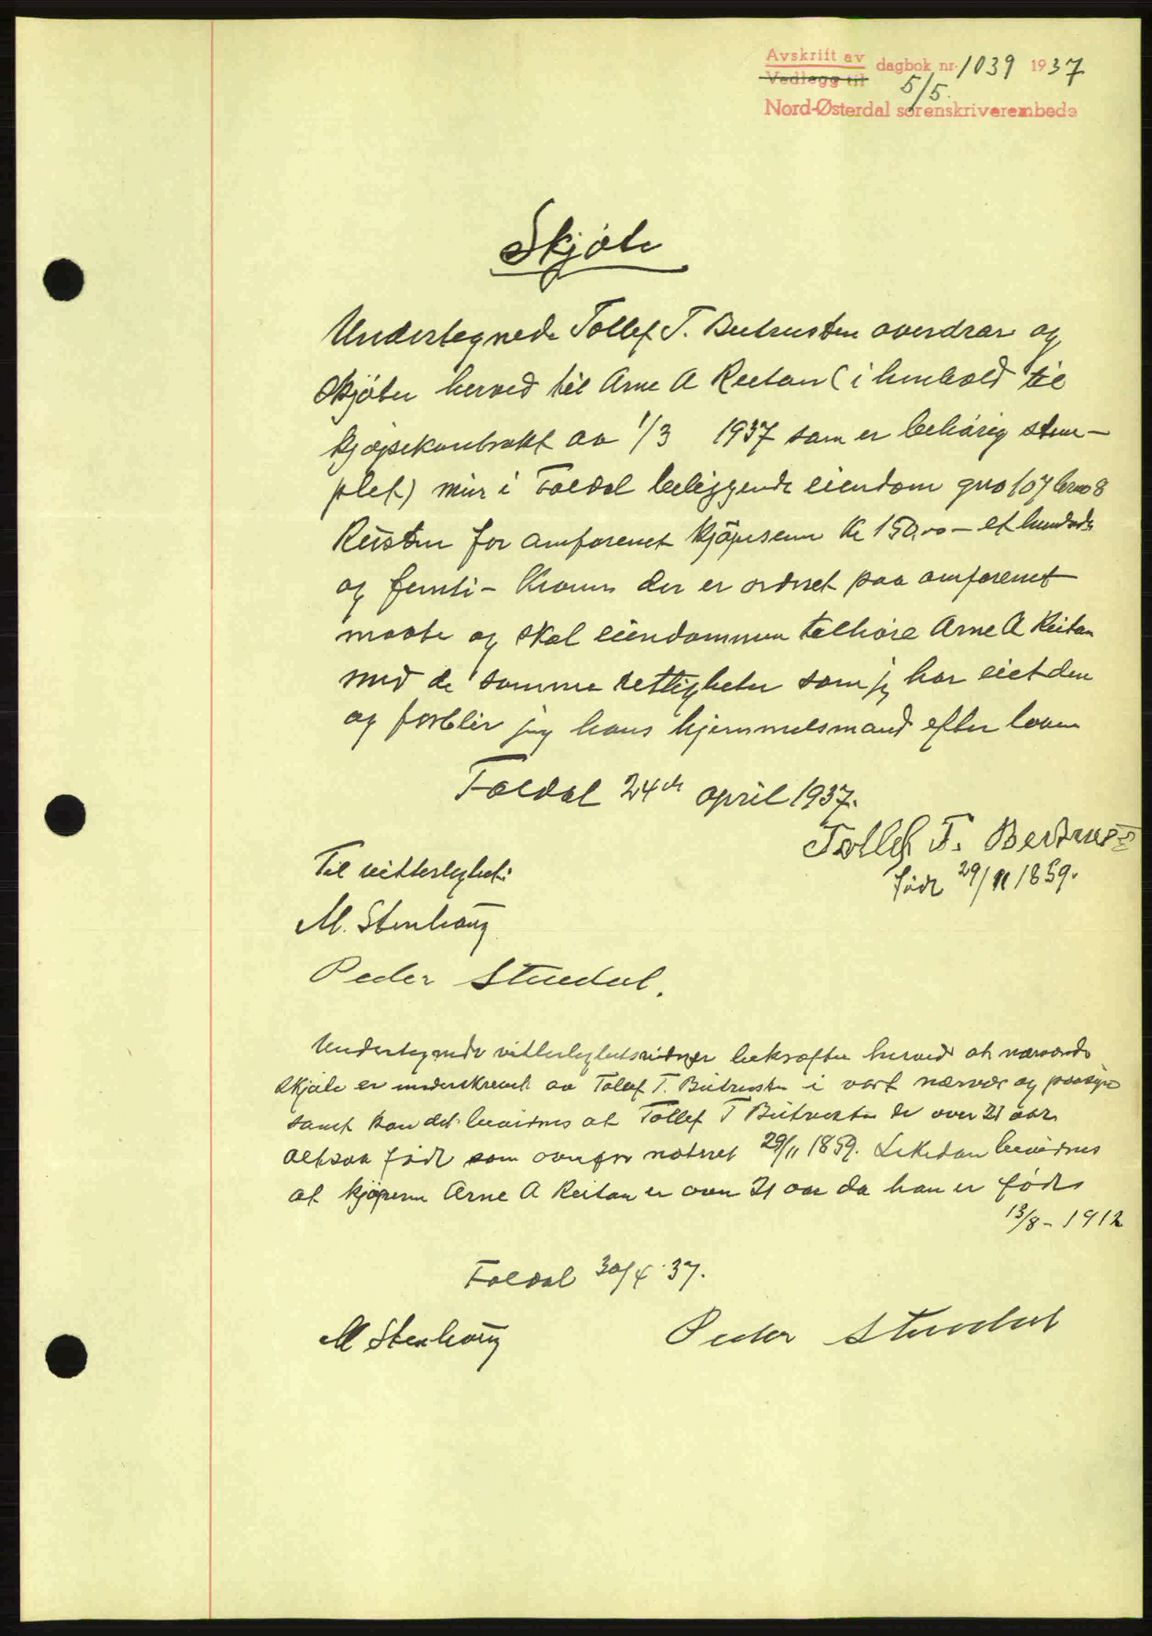 Avskrift av
Vedlegg til
dagbok nr. 1039 1937
5/5.
Nord-Østerdal sorenskriverembede
Skjøte
Undertegnede Tollef T. Butrusten overdrar og
skjøter herved til Arne A Reitan (i henhold til
kjøpekontrakt av 1/3 1937 som er behørig stem-
plet) min i Foldal beliggende eiendom gno 107 bno 8
Reisten for omforenet kjøpesum kr 150.00 - et hundrede
og femti - kroner der er ordnet paa omforenet
maate og skal eiendommen tilhøre Arne A Reitan
med de samme rettigheter som jeg har eiet den
og forblir jeg hans hjemmelsmand efter loven
Foldal 24de april 1937.
Tollef T.
født 29/11 1859.
Til vitterlighet:
M. Stenhaug
Peder Stuedal.
Undertegnede vitterlighetsvidner bekræfter herved at nærværende
skjøte er underskrevet av Tollef T. Butrusten i vort nærvær og paasyn
samt kan det bevidnes at Tollef T Butrusten er over 21 aar
altsaa født som ovenfor noteret 29/11 1859. Likedan bevidnes
at kjøperen Arne A Reitan er over 21 aar da han er født
13/8 - 1912
Foldal 30/4 37.
M Stenhaug
Peder Stuedal